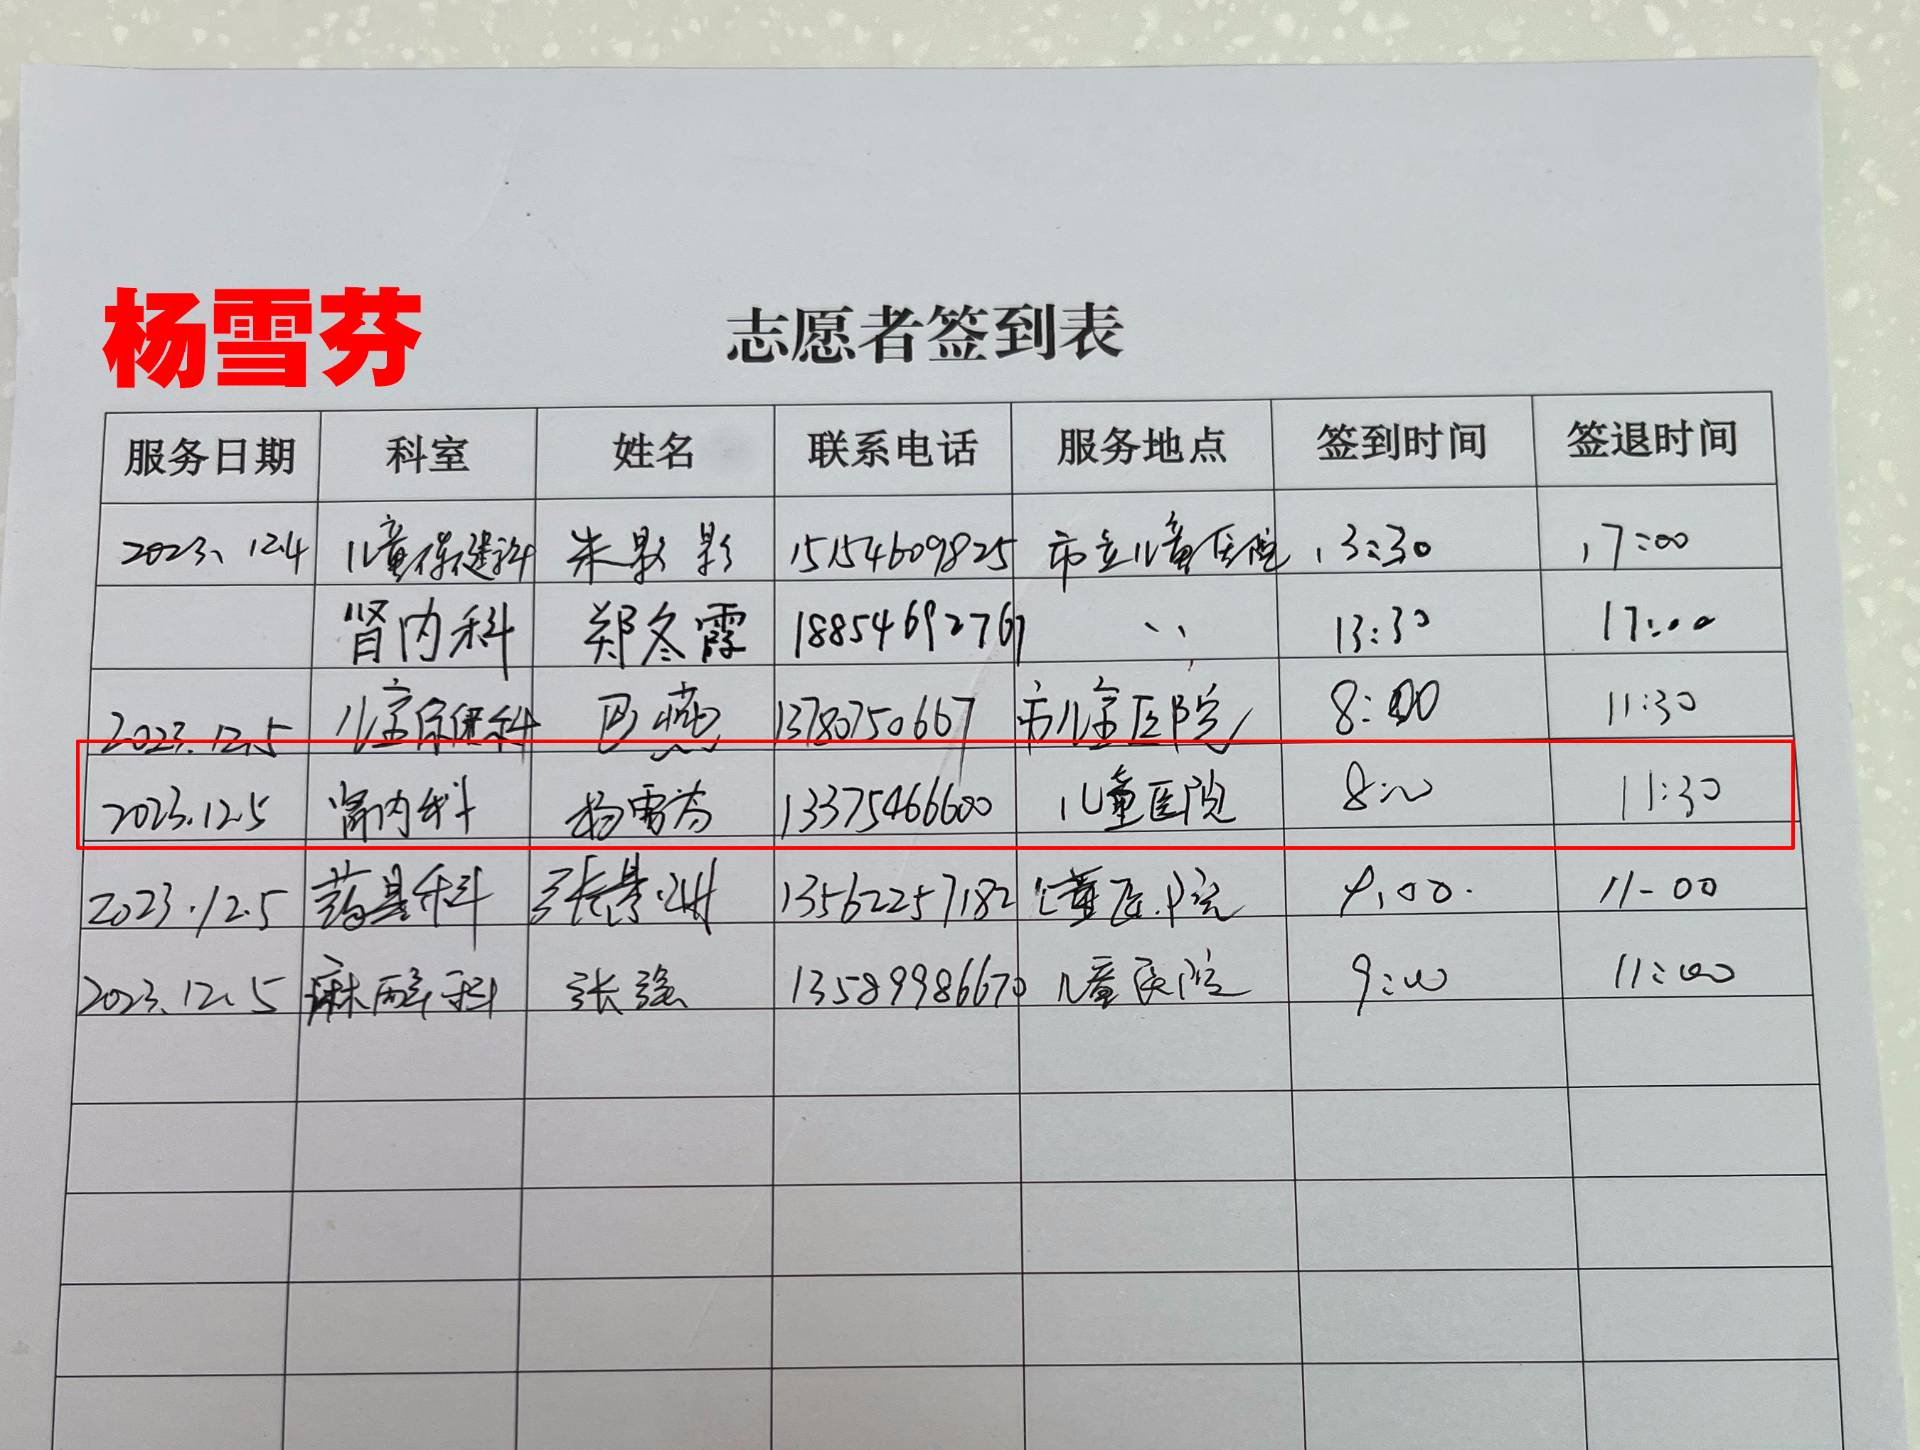 杨雪芬
志愿者签到表
服务日期 科室 姓名 联系电话 服务地点 签到时间 签退时间
2023.12.4 儿童保健科 朱影影 15154609825 市立儿童医院 13:30 17:00
肾内科 郑冬霞 18854692767 、、 13:30 17:00
2023.12.5 儿童保健科 巴燕 13780750667 市儿童医院 8:00 11:30
2023.12.5 肾内科 杨雪芬 13375466600 儿童医院 8:00 11:30
2023.12.5 药具科 张景洲 13562257182 儿童医院 9:00 11-00
2023.12.5 麻醉科 张强 13589986670 儿童医院 9:00 11:00